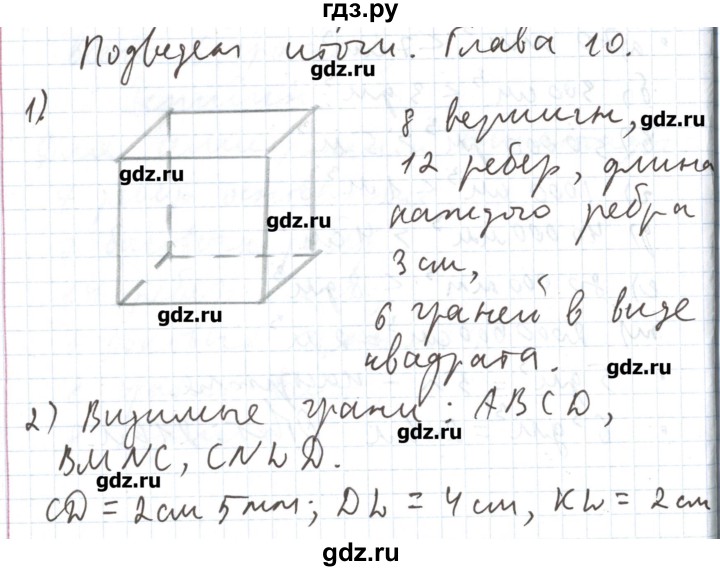 гдз.ру
Подведем итоги. Глава 10.
gdz.ru
1)
8 вершин,
gdz.ru
12 ребер, длина
gdz.ru
каждого ребра
gdz.ru
3 см,
gdz.ru
6 граней в виде
квадрата.
gdz.ru
2) Видимые грани: ABCD,
gdz.ru
BMNC, CNLD.
gdz.ru
CD = 2см 5мм; DL = 4см, KL = 2см
gdz.ru
gdz.ru